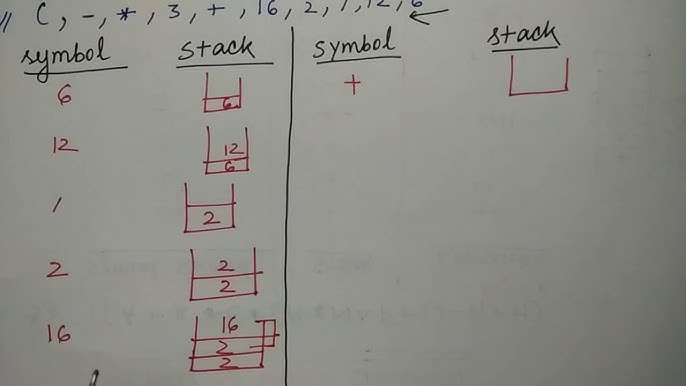 // C, -, *, 3, +, 16, 2, /, 12, 6 ←
symbol stack symbol stack
6 6 +
12 12
6
/ 2
2 2
2
16 16
2
2